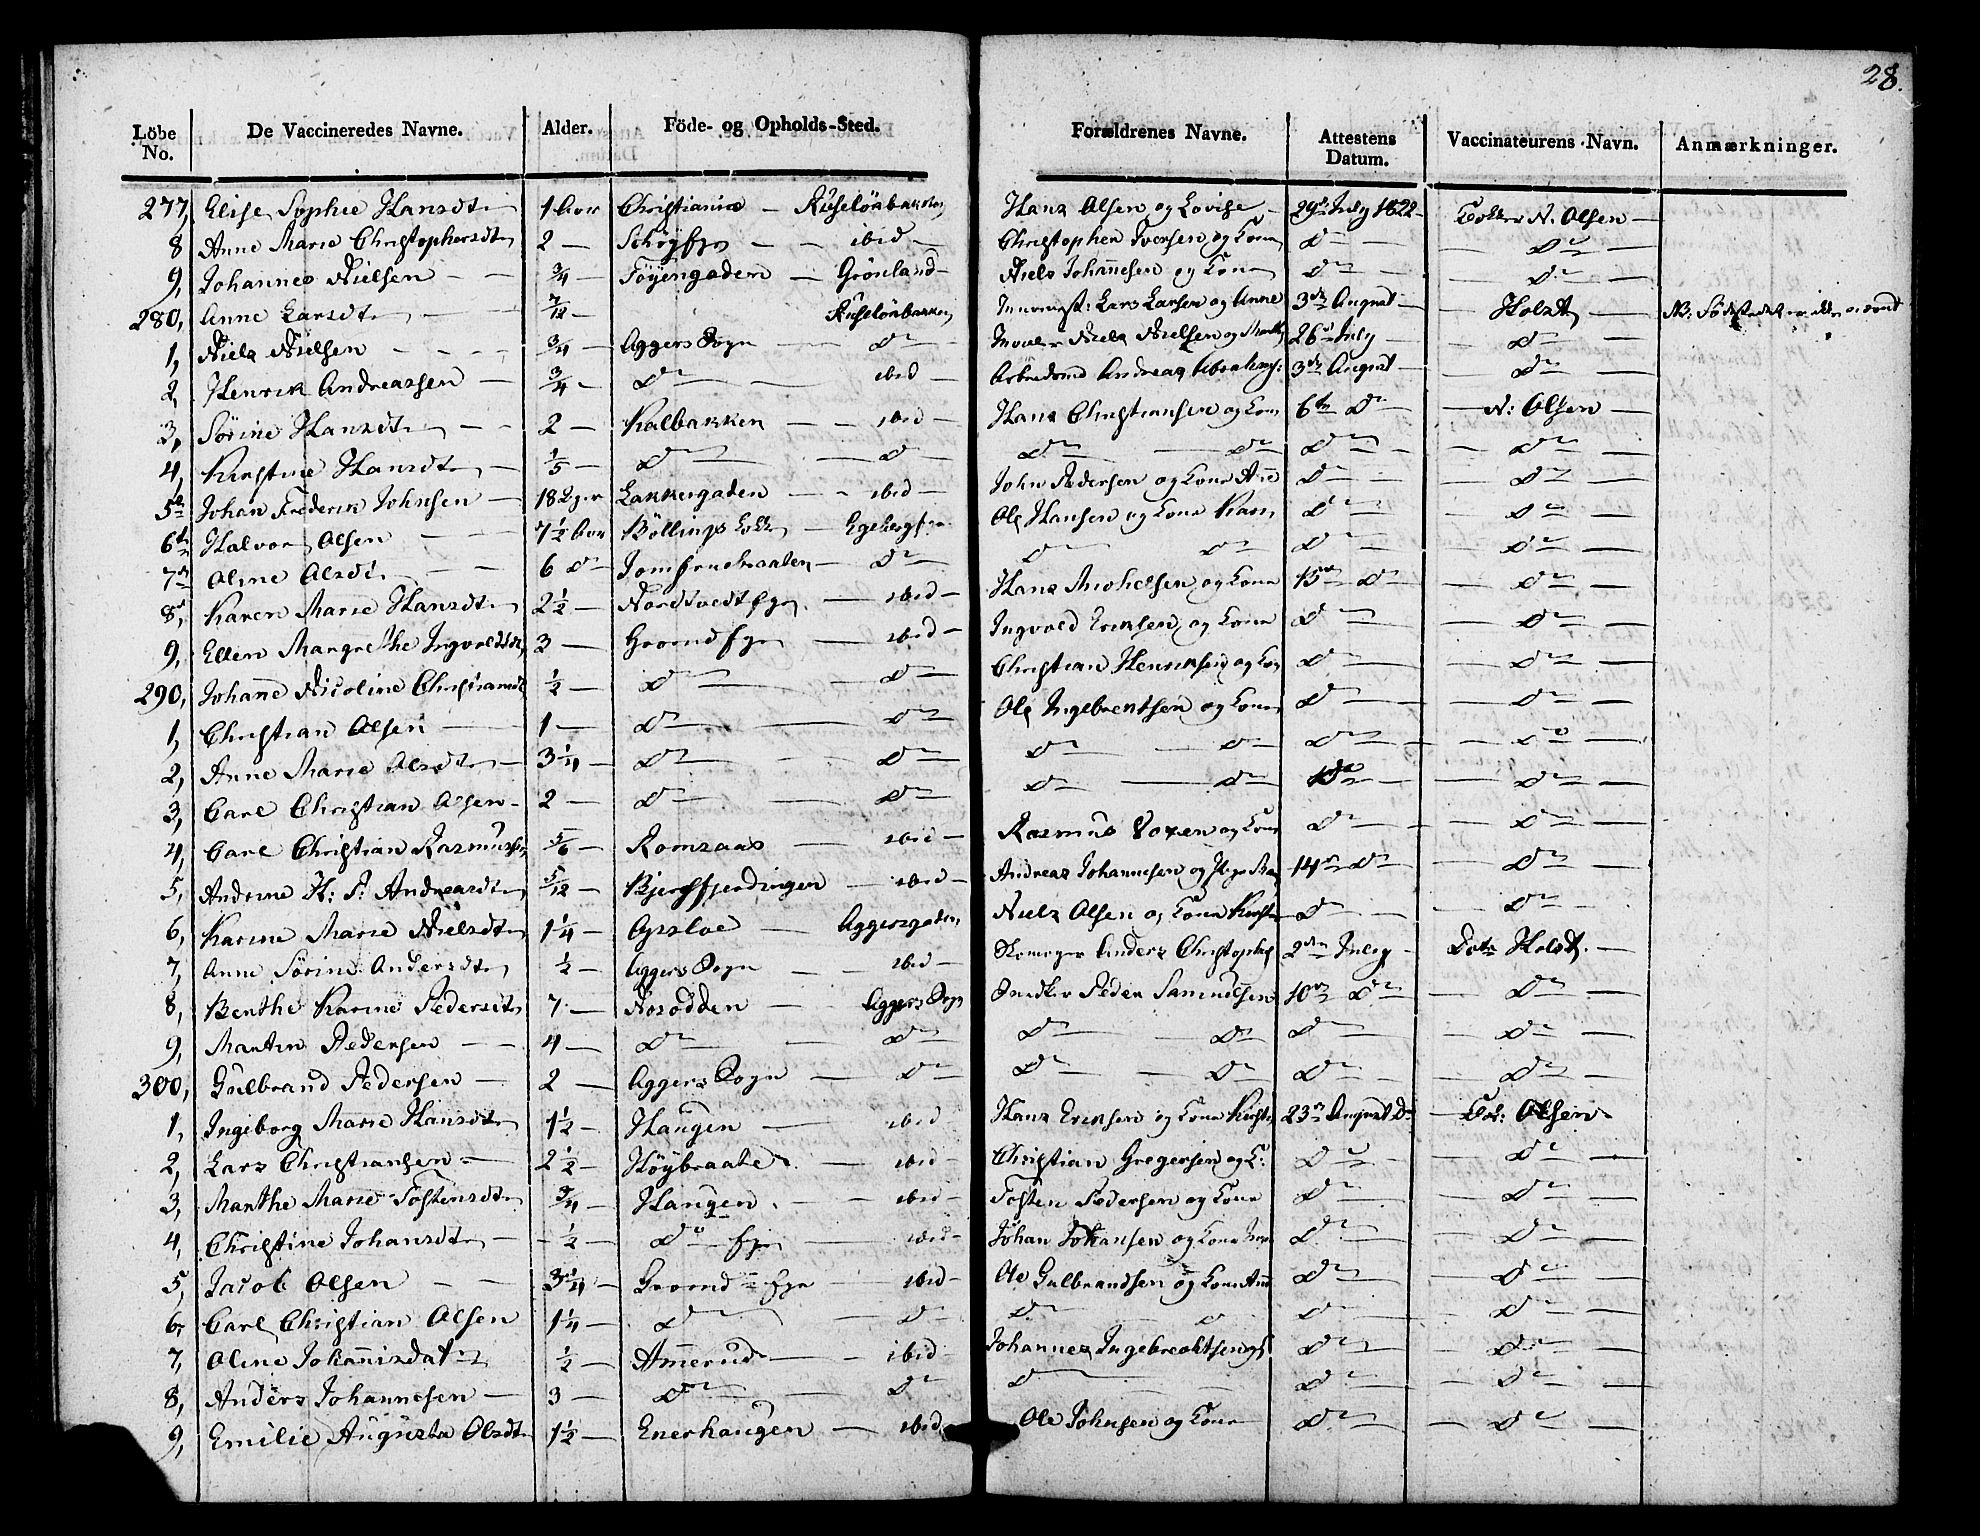 28.
Löbe No. De Vaccineredes Navne. Alder. Föde- og Opholds-Sted. Forældrenes Navne. Attestens Datum. Vaccinateurens Navn. Anmærkninger.
277, Elise Sophie Hansdt 1 Aar Christiania — Ruselöebakken Hans Olsen og Lovise 29de July 1822 Klokker N. Olsen
8 Anne Marie Christophersdt 2 — ibid — Christopher Iversen og Kone Do Do
9, Johannes Nielsen 3/4 — Töyengaden — Grönland Niels Johannesen og Kone Do Do
280, Anne Larsdt 7/12 — Ruselöebakken Lars Larsen og Anne 3de August Holst NB: Fødestedet er ikke
1, Niels Nielsen 3/4 — Aggers Sogn Do Niels Nielsen og 26de July Do
2, Henrik Andreassen 3/4 — Do ibid Andreas Abrahams: 3de August Do
3, Sörine Hansdt 2 — Kalbakken ibid Hans Christiansen og Kone 6te Do N: Olsen
4, Kirstine Hansdt 1/5 — Do Do Do Do Do Do
5te Johan Frederik Johnsen 18 Uger Lakkergaden ibid John Pedersen og Kone Do Do
6te Halvor Olsen 7 1/2 Aar Böllings Lökke Egebergfjer Ole Hansen og Kone Karen Do Do
7de Oline Olsdt 6 Do Jomfruebraaten Do Do Do Do Do
8, Karen Marie Hansdt 2 1/2 — Nordtvedt Ejer ibid Hans Michelsen og Kone 13de Do Do
9, Ellen Margrethe Ingvoldsdt 3 — Groerud ibid Ingvold Eriksen og Kone Do Do
290, Johanne Nicoline Christiansdt 1/2 — Do Do Christian Henriksen og Kone Do Do
1, Christian Olsen 1 — Do Do Ole Ingebrentsen og Kone Do Do
2, Anne Marie Olsdt 3 1/4 — Do Do Do Do Do Do
3, Carl Christian Olsen 2 — Do Do Do Do Do
4, Carl Christian Rasmussen 5/6 — Romsaas ibid Rasmus og Kone Do Do
5, Andrine H: P: Andreasdt 5/12 — Bjergfjerdingen ibid Andreas Johannesen og 14de Do Do
6, Karine Marie Nielsdt 1 1/4 — Opsloe Aggersgaden Niels Olsen og Kone Kirstine Do Do
7, Anne Sörine Andersdt 1/2 — Aggers Sogn ibid Skomager Anders Christophs 2den July Holst
8, Berthe Karine Pedersdt 7 — Næsodden Aggers Sogn Snedker Peder Samuelsen 10de Do Do
9, Martin Pedersen 4 — Do Do Do Do Do Do
300, Gulbrand Pedersen 2 — Aggers Sogn Do Do Do Do Do
1, Ingeborg Marie Hansdt 1 1/2 — Haugen ibid Hans Eriksen og Kone Kirsti 23de August Klok: Olsen
2, Lars Christiansen 2 1/2 — Höybraaten ibid Christian Gregersen og K: Do Do
3, Marthe Marie Tostensdt 3/4 — Haugen ibid Tosten Pedersen og Kone Do Do
4, Christine Johansdt 1/2 — Do ibid Johan Johansen og Kone Do Do
5, Jacob Olsen 3 1/4 — Groerud ibid Ole Gulbrandsen og Kone Do Do
6, Carl Christian Olsen 1 1/4 — Do Do Do Do Do
7, Oline Johannisdatr 1/2 — Ammerud ibid Johannes Ingebrecktsen og Do Do
8, Anders Johannesen 3 — Do Do Do Do Do
9, Emilie Augusta Olsdt 1 1/2 — Enerhaugen ibid Ole Johnsen og Kone Do Do